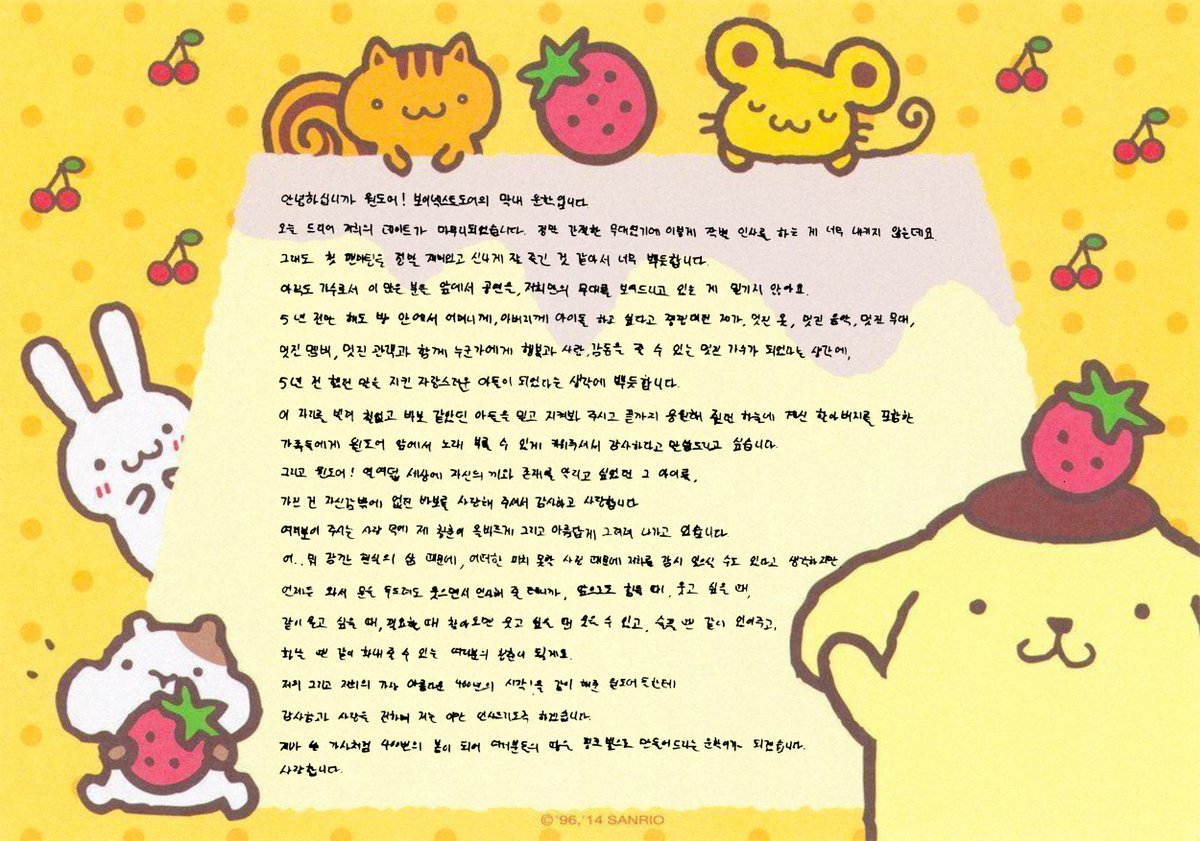 안녕하십니까 원도어! 보이넥스트도어의 막내 운학입니다
오늘 드디어 저희의 데이트가 마무리되었습니다. 정말 간절한 무대였기에 이렇게 작별 인사를 하는 게 너무 내키지 않는데요.
그래도 첫 팬미팅을 정말 재미있고 신나게 잘 즐긴 것 같아서 너무 뿌듯합니다.
아직도 가수로서 이 많은 분들 앞에서 공연을, 저희만의 무대를 보여드리고 있는 게 믿기지 않아요.
5년 전만 해도 방 안에서 어머니께, 아버지께 아이돌 하고 싶다고 징징대던 제가, 멋진 옷, 멋진 음악, 멋진 무대,
멋진 멤버, 멋진 관객과 함께 누군가에게 행복과 사랑, 감동을 줄 수 있는 멋진 가수가 되었다는 생각에,
5년 전 했던 말을 지킨 자랑스러운 아들이 되었다는 생각에 뿌듯합니다.
이 자리를 빌려 철없고 바보 같았던 아들을 믿고 지켜봐 주시고 끝까지 응원해 줬던 하늘에 계신 할아버지를 포함한
가족들에게 원도어 앞에서 노래 부를 수 있게 키워주셔서 감사하다고 말씀드리고 싶습니다.
그리고 원도어! 열여덟 세상에 자신의 끼와 존재를 알리고 싶었던 그 아이를,
가진 건 자신감밖에 없던 바보를 사랑해 주셔서 감사하고 사랑합니다
여러분이 주시는 사랑 덕에 제 청춘이 올바르게 그리고 아름답게 그려져 나가고 있습니다.
어.. 뭐 잠깐 현실의 삶 때문에, 어떠한 피치 못할 사정 때문에 저희를 잠시 잊으실 수도 있다고 생각하지만
언제든 와서 문을 두드려도 웃으면서 인사해 줄 테니까, 앞으로도 힘들 때, 웃고 싶을 때,
같이 울고 싶을 때, 필요할 때 찾아오면 웃고 싶을 땐 웃을 수 있고, 슬플 땐 같이 있어주고,
화날 땐 같이 화내줄 수 있는 여러분의 청춘이 될게요.
저의 그리고 저희의 가장 아름다운 400년의 시작!을 같이 해준 원도어들한테
감사함과 사랑을 전하며 저는 이만 인사드리도록 하겠습니다.
제가 쓴 가사처럼 400번의 봄이 되어 여러분들의 맘을 핑크빛으로 만들어드리는 운학이가 되겠습니다.
사랑합니다.
©'96,'14 SANRIO